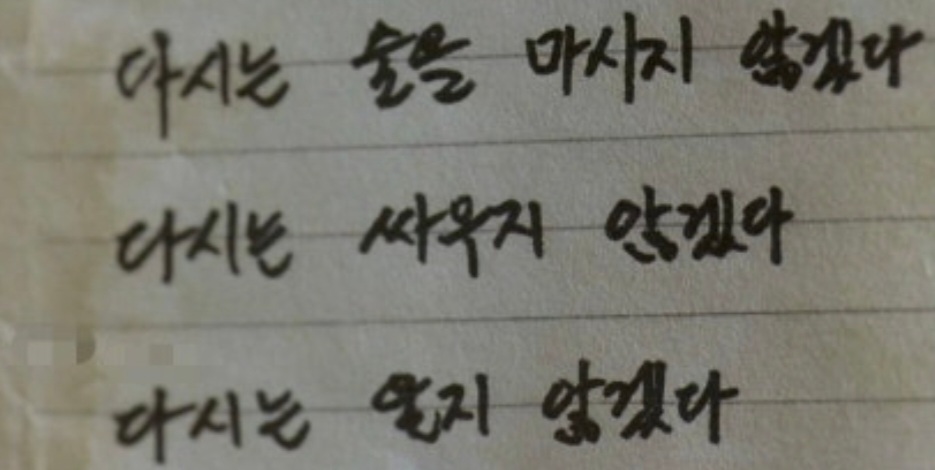 다시는 술을 마시지 않겠다
다시는 싸우지 않겠다
다시는 울지 않겠다